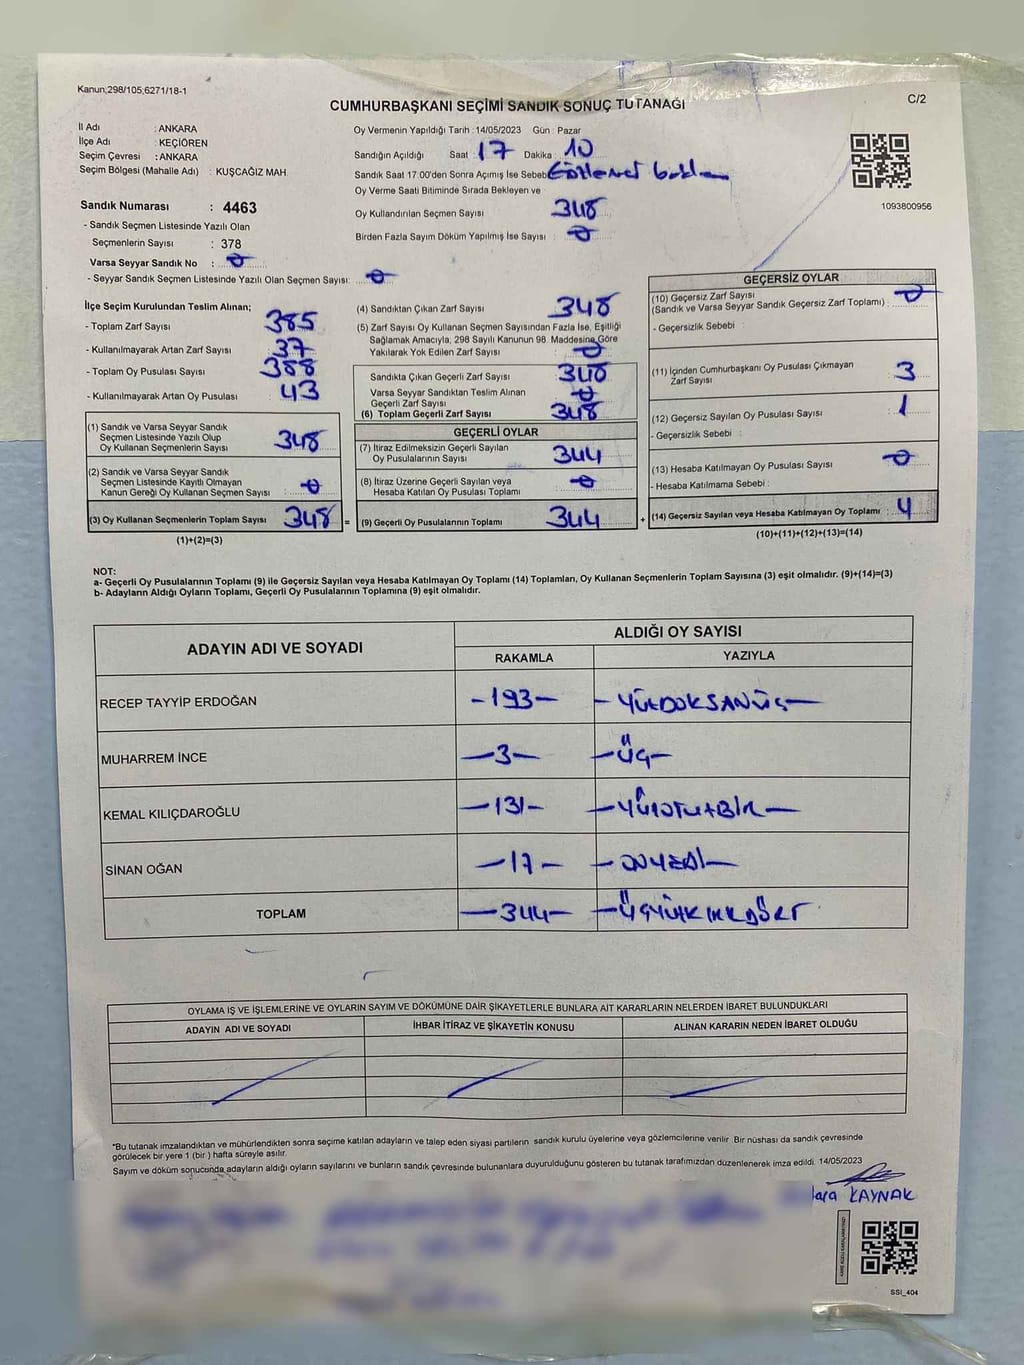 Kanun;298/105;6271/18-1
CUMHURBAŞKANI SEÇİMİ SANDIK SONUÇ TUTANAĞI
C/2
İl Adı : ANKARA
İlçe Adı : KEÇİÖREN
Seçim Çevresi : ANKARA
Seçim Bölgesi (Mahalle Adı) : KUŞCAĞIZ MAH.
Sandık Numarası : 4463
- Sandık Seçmen Listesinde Yazılı Olan
Seçmenlerin Sayısı : 378
Varsa Seyyar Sandık No : 0
- Seyyar Sandık Seçmen Listesinde Yazılı Olan Seçmen Sayısı: 0
Oy Vermenin Yapıldığı Tarih : 14/05/2023 Gün : Pazar
Sandığın Açıldığı Saat : 17 Dakika : 10
Sandık Saat 17.00'den Sonra Açımış İse Sebeb
Oy Verme Saati Bitiminde Sırada Bekleyen ve
Oy Kullandırılan Seçmen Sayısı 348
Birden Fazla Sayım Döküm Yapılmış İse Sayısı : 0
1093800956
İlçe Seçim Kurulundan Teslim Alınan;
- Toplam Zarf Sayısı 385
- Kullanılmayarak Artan Zarf Sayısı : 37
- Toplam Oy Pusulası Sayısı : 388
- Kullanılmayarak Artan Oy Pusulası : 43
(1) Sandık ve Varsa Seyyar Sandık
Seçmen Listesinde Yazılı Olup
Oy Kullanan Seçmenlerin Sayısı : 348
(2) Sandık ve Varsa Seyyar Sandık
Seçmen Listesinde Kayıtlı Olmayan
Kanun Gereği Oy Kullanan Seçmen Sayısı : 0
(3) Oy Kullanan Seçmenlerin Toplam Sayısı 348 =
(1)+(2)=(3)
(4) Sandıktan Çıkan Zarf Sayısı 348
(5) Zarf Sayısı Oy Kullanan Seçmen Sayısından Fazla İse, Eşitliği
Sağlamak Amacıyla, 298 Sayılı Kanunun 98. Maddesine Göre
Yakılarak Yok Edilen Zarf Sayısı : 0
Sandıkta Çıkan Geçerli Zarf Sayısı : 348
Varsa Seyyar Sandıktan Teslim Alınan
Geçerli Zarf Sayısı : 0
(6) Toplam Geçerli Zarf Sayısı : 348
GEÇERLİ OYLAR
(7) İtiraz Edilmeksizin Geçerli Sayılan
Oy Pusulalarının Sayısı : 344
(8) İtiraz Üzerine Geçerli Sayılan veya
Hesaba Katılan Oy Pusulası Toplamı : 0
(9) Geçerli Oy Pusulalarının Toplamı 344 +
GEÇERSİZ OYLAR
(10) Geçersiz Zarf Sayısı
(Sandık ve Varsa Seyyar Sandık Geçersiz Zarf Toplamı) : 0
- Geçersizlik Sebebi
(11) İçinden Cumhurbaşkanı Oy Pusulası Çıkmayan
Zarf Sayısı : 3
(12) Geçersiz Sayılan Oy Pusulası Sayısı : 1
- Geçersizlik Sebebi :
(13) Hesaba Katılmayan Oy Pusulası Sayısı : 0
- Hesaba Katılmama Sebebi :
(14) Geçersiz Sayılan veya Hesaba Katılmayan Oy Toplamı : 4
(10)+(11)+(12)+(13)=(14)
NOT:
a- Geçerli Oy Pusulalarının Toplamı (9) ile Geçersiz Sayılan veya Hesaba Katılmayan Oy Toplamı (14) Toplamları, Oy Kullanan Seçmenlerin Toplam Sayısına (3) eşit olmalıdır. (9)+(14)=(3)
b- Adayların Aldığı Oyların Toplamı, Geçerli Oy Pusulalarının Toplamına (9) eşit olmalıdır.
ADAYIN ADI VE SOYADI
ALDIĞI OY SAYISI
RAKAMLA YAZIYLA
RECEP TAYYİP ERDOĞAN -193- -YÜZDOKSANÜÇ-
MUHARREM İNCE -3- -ÜÇ-
KEMAL KILIÇDAROĞLU -131- -YÜZOTUZBİR-
SİNAN OĞAN -17- -ONYEDİ-
TOPLAM -344- -ÜÇYÜZKIRKDÖRT
OYLAMA İŞ VE İŞLEMLERİNE VE OYLARIN SAYIM VE DÖKÜMÜNE DAİR ŞİKAYETLERLE BUNLARA AİT KARARLARIN NELERDEN İBARET BULUNDUKLARI
ADAYIN ADI VE SOYADI İHBAR İTİRAZ VE ŞİKAYETİN KONUSU ALINAN KARARIN NEDEN İBARET OLDUĞU
*Bu tutanak imzalandıktan ve mühürlendikten sonra seçime katılan adayların ve talep eden siyasi partilerin sandık kurulu üyelerine veya gözlemcilerine verilir. Bir nüshası da sandık çevresinde
görülecek bir yere 1 (bir ) hafta süreyle asılır.
Sayım ve döküm sonucunda adayların aldığı oyların sayılarını ve bunların sandık çevresinde bulunanlara duyurulduğunu gösteren bu tutanak tarafımızdan düzenlenerek imza edildi. 14/05/2023
KAYNAK
SSI_404